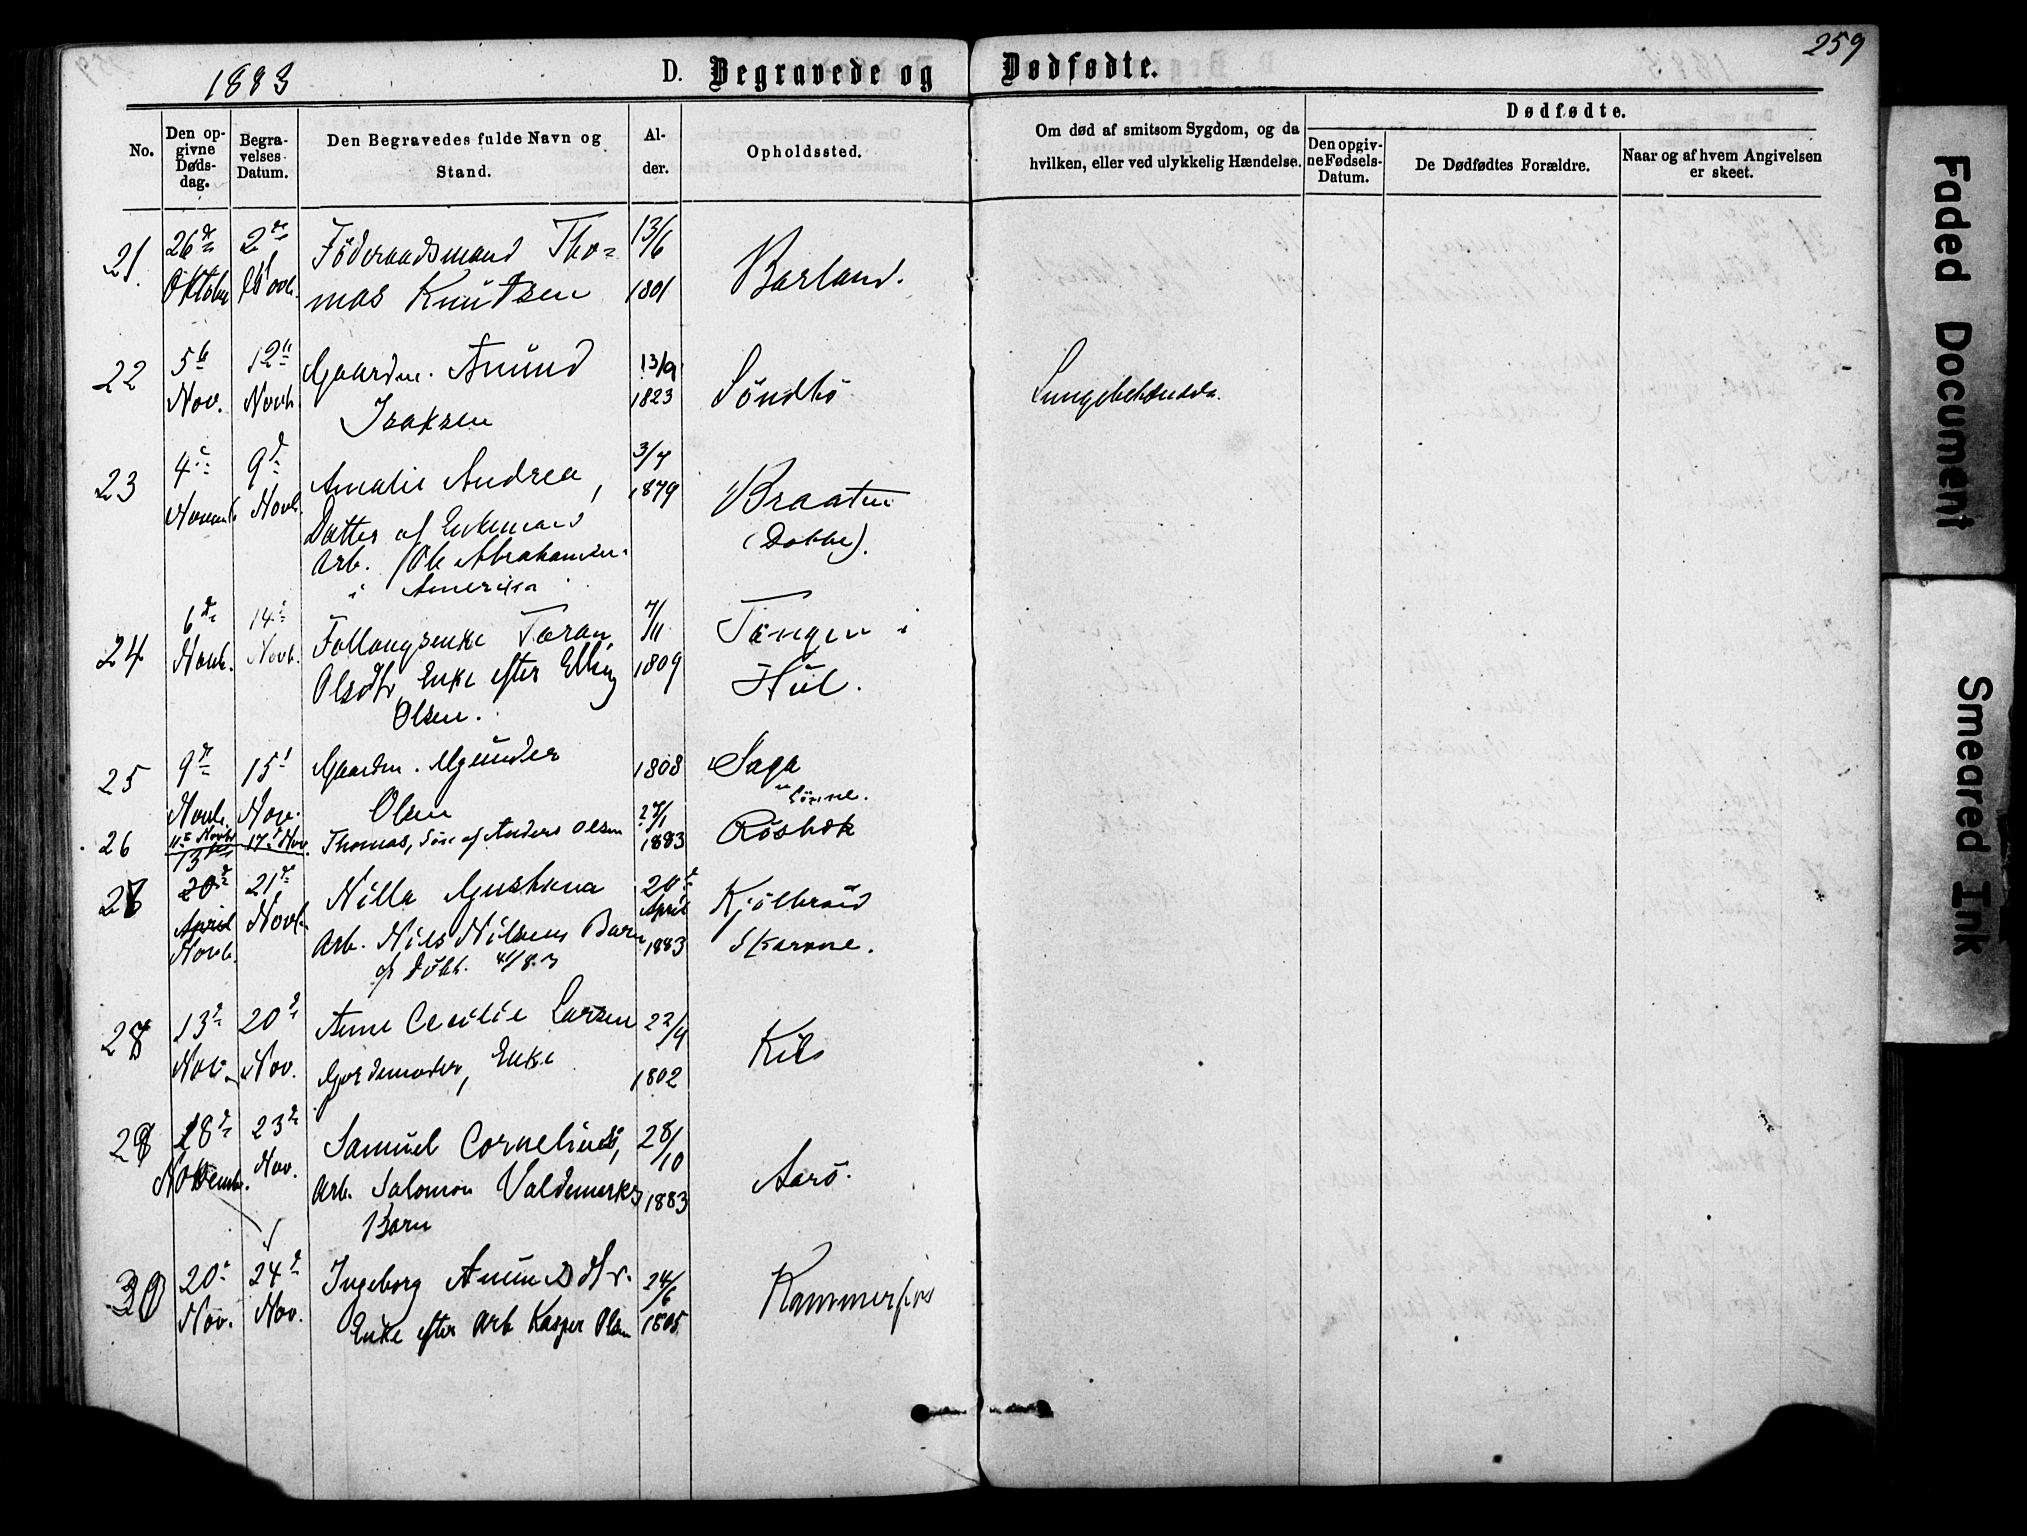 1883
D. Begravede og Dødfødte.
259
No.
Den opgivne Dødsdag.
Begravelses Datum.
Den Begravedes fulde Navn og Stand.
Alder.
Opholdssted.
Om død af smitsom Sygdom, og da hvilken, eller ved ulykkelig Hændelse.
Dødfødte.
Den opgivne Fødsels-Datum.
De Dødfødtes Forældre.
Naar og af hvem Angivelsen er skeet.
21. 26de Oktober 2den Novb. Föderaadsmand Thomas Knudsen 13/6 1801 Barland.
22 5te Nov. 12te Novb. Gaardm. Amund Isaksen 13/9 1823 Söndbö
23 4de Novemb. 9de Novb. Amalie Andrea, 1879 Braaten (Dobbe).
Datter af Enkemand
Arb. Ole Abrahamsen
i Amerika
24 6de Novb. 14de Novb. Taran Olsdtr, Enke efter Elling Olsen. 7/11 1809 Tangen i Hül.
25 9de Novb. 15de Nov. Gaardm. Olsen 1808
26 11te Novbr 17de Nov. Thomas, Sön af Anders Olsen 27/1 1883
13de
27 20de April Novb. 21de Novb. Nilla 20de April 1883
Arb. Nils Nilsens Barn
28 13de Nov. 20de Nov. Anne Cecilie Larsen 22/9 1802 Kil
Gjordemoder, Enke
29 18de Novemb. 23de Nov. Samuel Cornelius, 28/10 1883 Aarö.
Arb. Salomon
Barn
30 20de Nov. 24de Nov. Ingeborg Amundsdtr. 24/6 1805 Kammerfos
Enke efter Arb Kasper Olsen
Faded Document
Smeared Ink